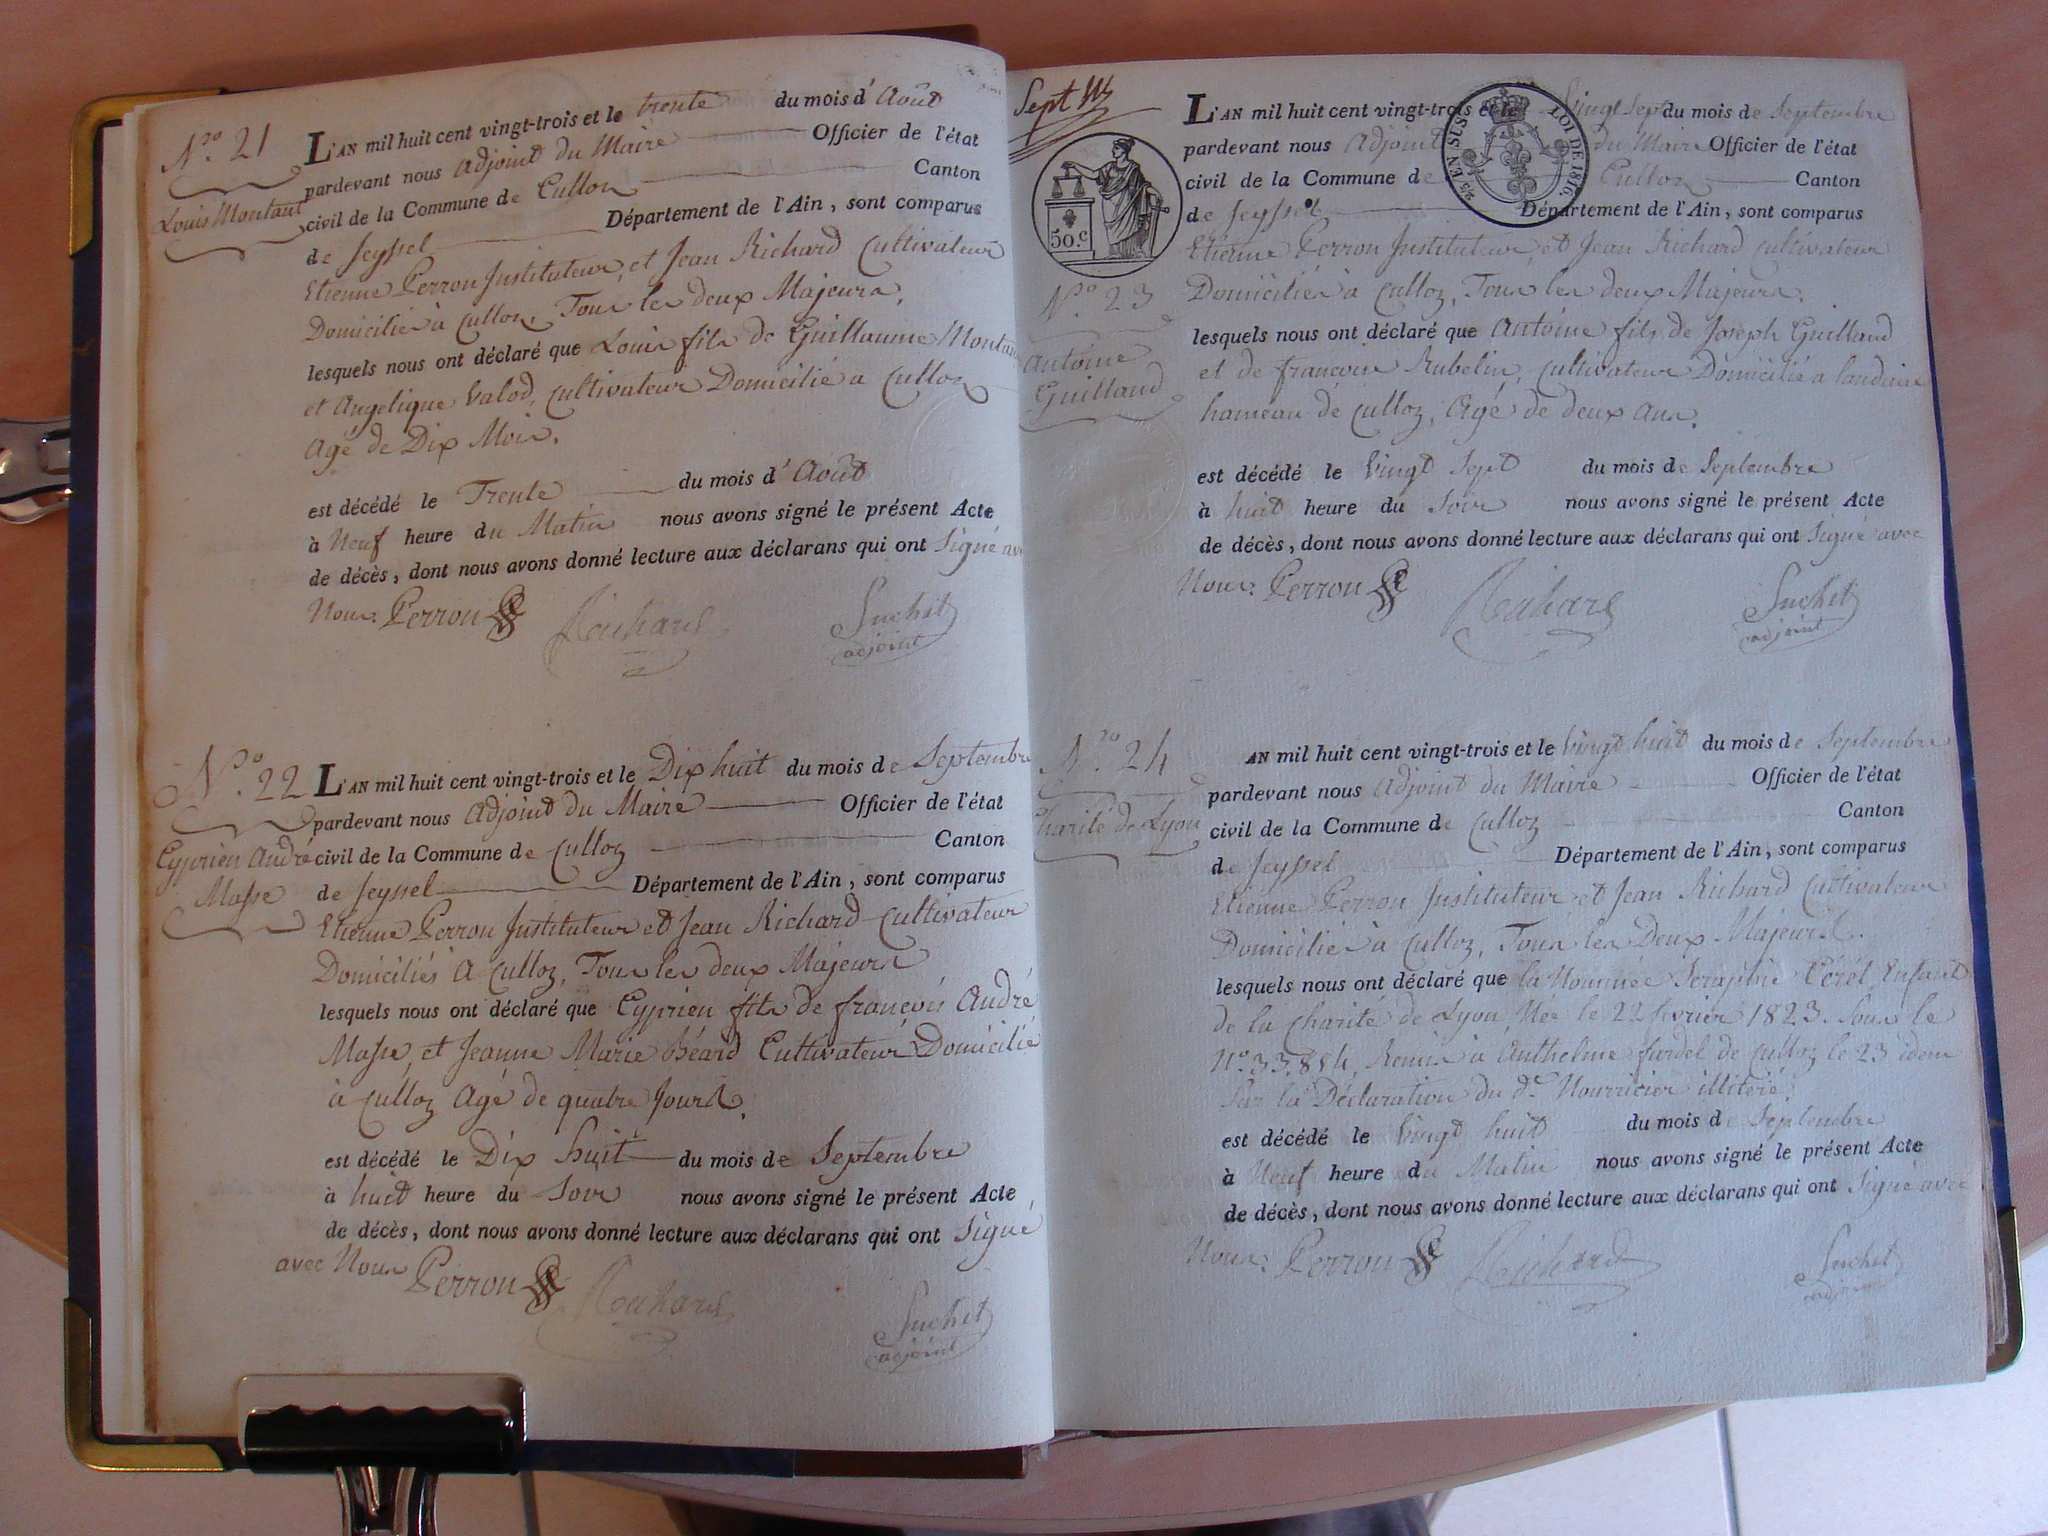 N.ro 21
Louis Montant
L'AN mil huit cent vingt-trois et le trente du mois d'Août
pardevant nous Adjoint du Maire Officier de l'état
civil de la Commune de Culloz Canton
de Seyssel Département de l'Ain, sont comparus
Etienne Perron Instituteur, et Jean Richard Cultivateur
Domiciliés à Culloz, Tous les deux Majeurs,
lesquels nous ont déclaré que Louis fils de Guillaume Montant
et Angelique Valod, Cultivateur Domicilié a Culloz
Agé de Dix Mois.
est décédé le Trente du mois d'Août
à Neuf heure du Matin nous avons signé le présent Acte
de décès, dont nous avons donné lecture aux déclarans qui ont Signé avec
Nous: Perron Richard Suchet
adjoint
N.ro 22
Cyprien André
Masse
L'AN mil huit cent vingt-trois et le Dix huit du mois de Septembre
pardevant nous Adjoint du Maire Officier de l'état
civil de la Commune de Culloz Canton
de Seyssel Département de l'Ain, sont comparus
Etienne Perron Instituteur et Jean Richard Cultivateur
Domiciliés A Culloz, Tous les deux Majeurs
lesquels nous ont déclaré que Cyprien fils de françois André
Masse, et Jeanne Marie Béard Cultivateur Domicilié
à Culloz Agé de quatre Jours.
est décédé le Dix huit du mois de Septembre
à huit heure du Soir nous avons signé le présent Acte
de décès, dont nous avons donné lecture aux déclarans qui ont Signé
avec Nous Perron Richard Suchet
adjoint
Sept
50.c
2/5 EN SUS LOI DE 1816.
N.ro 23
Antoine
Guilland
L'AN mil huit cent vingt-trois et le Vingt Sept du mois de Septembre
pardevant nous Adjoint du Maire Officier de l'état
civil de la Commune de Culloz Canton
de Seyssel Département de l'Ain, sont comparus
Etienne Perron Instituteur, et Jean Richard Cultivateur
Domiciliés à Culloz, Tous les deux Majeurs.
lesquels nous ont déclaré que Antoine fils de Joseph Guilland
et de francoise Rubelin, Cultivateur Domicilié a
hameau de Culloz, Agé de deux Ans.
est décédé le Vingt Sept du mois de Septembre
à huit heure du Soir nous avons signé le présent Acte
de décès, dont nous avons donné lecture aux déclarans qui ont Signé avec
Nous: Perron Richard Suchet
adjoint
N.ro 24
Charité de Lyon
AN mil huit cent vingt-trois et le Vingt huit du mois de Septembre
pardevant nous Adjoint du Maire Officier de l'état
civil de la Commune de Culloz Canton
de Seyssel Département de l'Ain, sont comparus
Etienne Perron Instituteur et Jean Richard Cultivateur
Domiciliés à Culloz, Tous les Deux Majeurs.
lesquels nous ont déclaré que la Nommée Seraphie Cérél Enfant
de la Charité de Lyon, Née le 22 février 1823. Sous le
N.o 33.814, Remis à Anthelme fardel de Culloz le 23 idem
Sur la Déclaration du d.t Nourricier illitéré.
est décédé le Vingt huit du mois de Septembre
à Neuf heure du Matin nous avons signé le présent Acte
de décès, dont nous avons donné lecture aux déclarans qui ont Signé avec
Nous: Perron Richard Suchet
adjoint